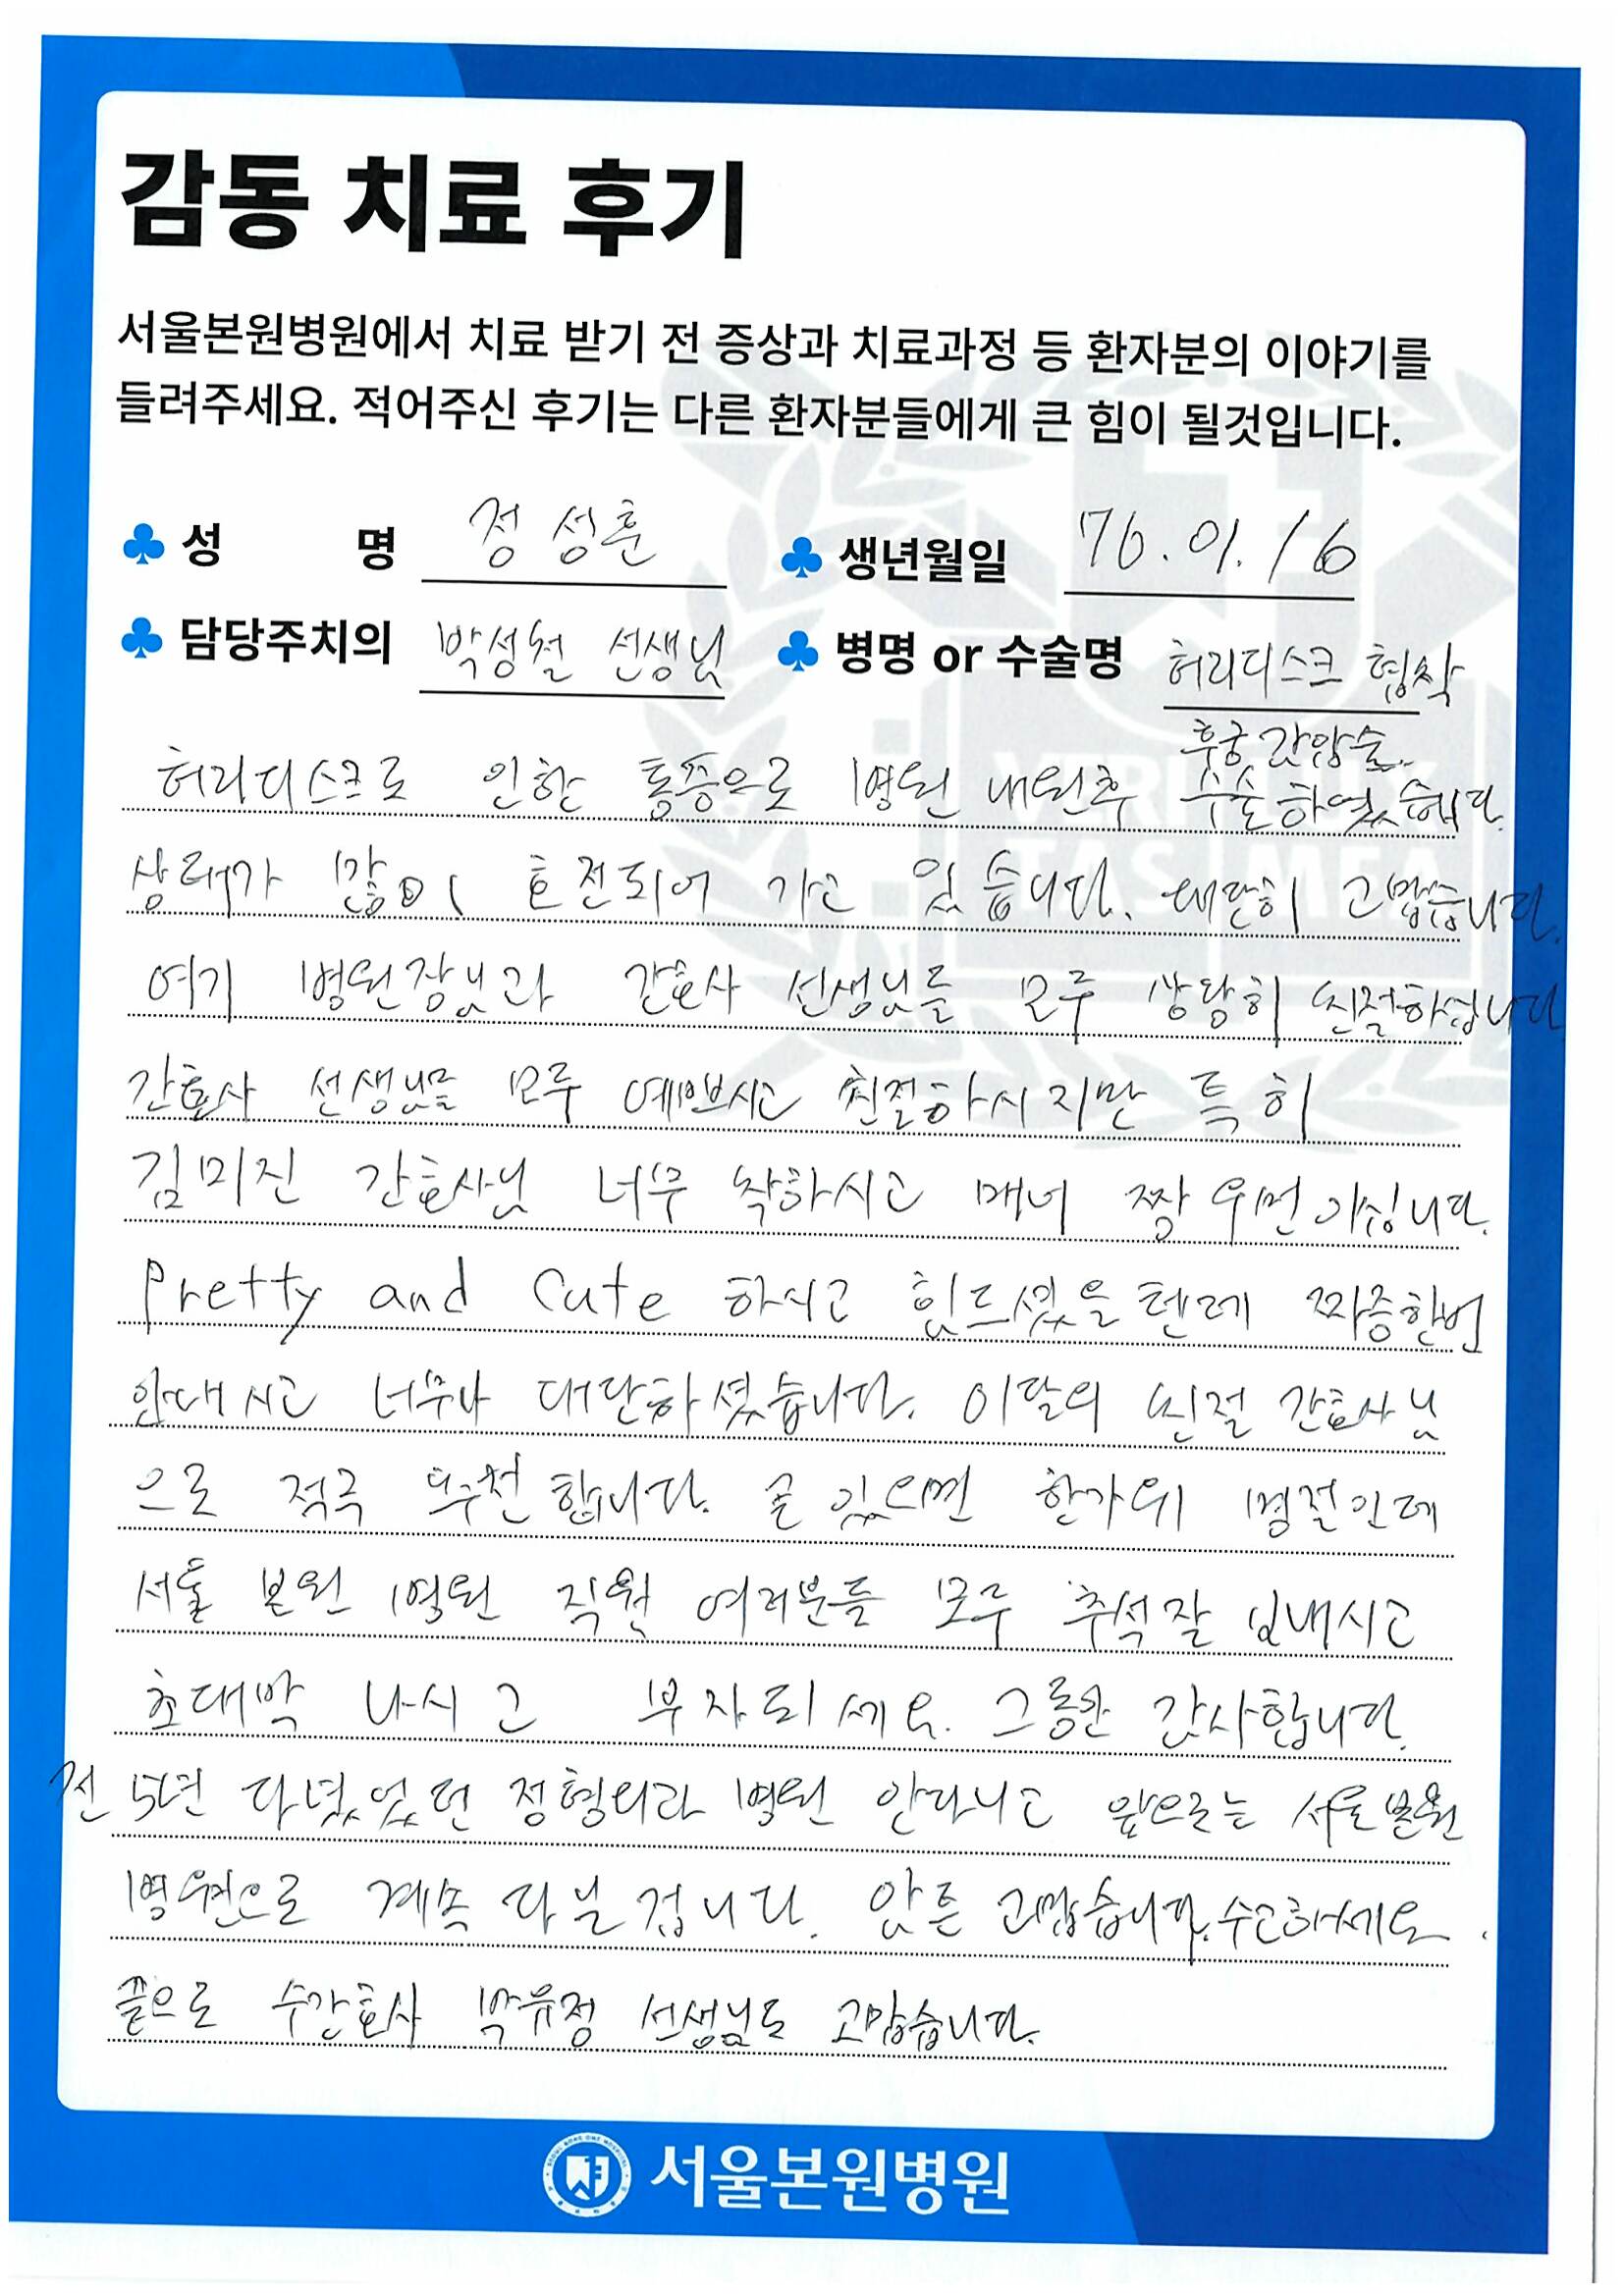 감동 치료 후기
서울본원병원에서 치료 받기 전 증상과 치료과정 등 환자분의 이야기를
들려주세요. 적어주신 후기는 다른 환자분들에게 큰 힘이 될것입니다.
♣ 성 명 정성훈 ♣ 생년월일 76. 01. 16
♣ 담당주치의 박성철 선생님 ♣ 병명 or 수술명 허리디스크 협착
후궁감압술.
허리디스크로 인한 통증으로 병원 내원후 수술하였습니다.
상태가 많이 호전되어 가고 있습니다. 대단히 고맙습니다.
여기 병원장님과 간호사 선생님들 모두 상당히 친절하십니다
간호사 선생님들 모두 예쁘시고 친절하시지만 특히
김미진 간호사님 너무 착하시고 매너 짱 우먼이십니다.
Pretty and Cute 하시고 힘드셨을텐데 짜증한번
안내시고 너무나 대단하셨습니다. 이달의 친절 간호사님
으로 적극 추천합니다. 곧 있으면 한가위 명절인데
서울 본원 병원 직원 여러분들 모두 추석잘 보내시고
초대박 나시고 부자되세요. 그동안 감사합니다.
전 5년 다녔었던 정형외과 병원 안다니고 앞으로는 서울본원
병원으로 계속 다닐겁니다. 암튼 고맙습니다. 수고하세요.
끝으로 수간호사 박유정 선생님도 고맙습니다.
서울본원병원